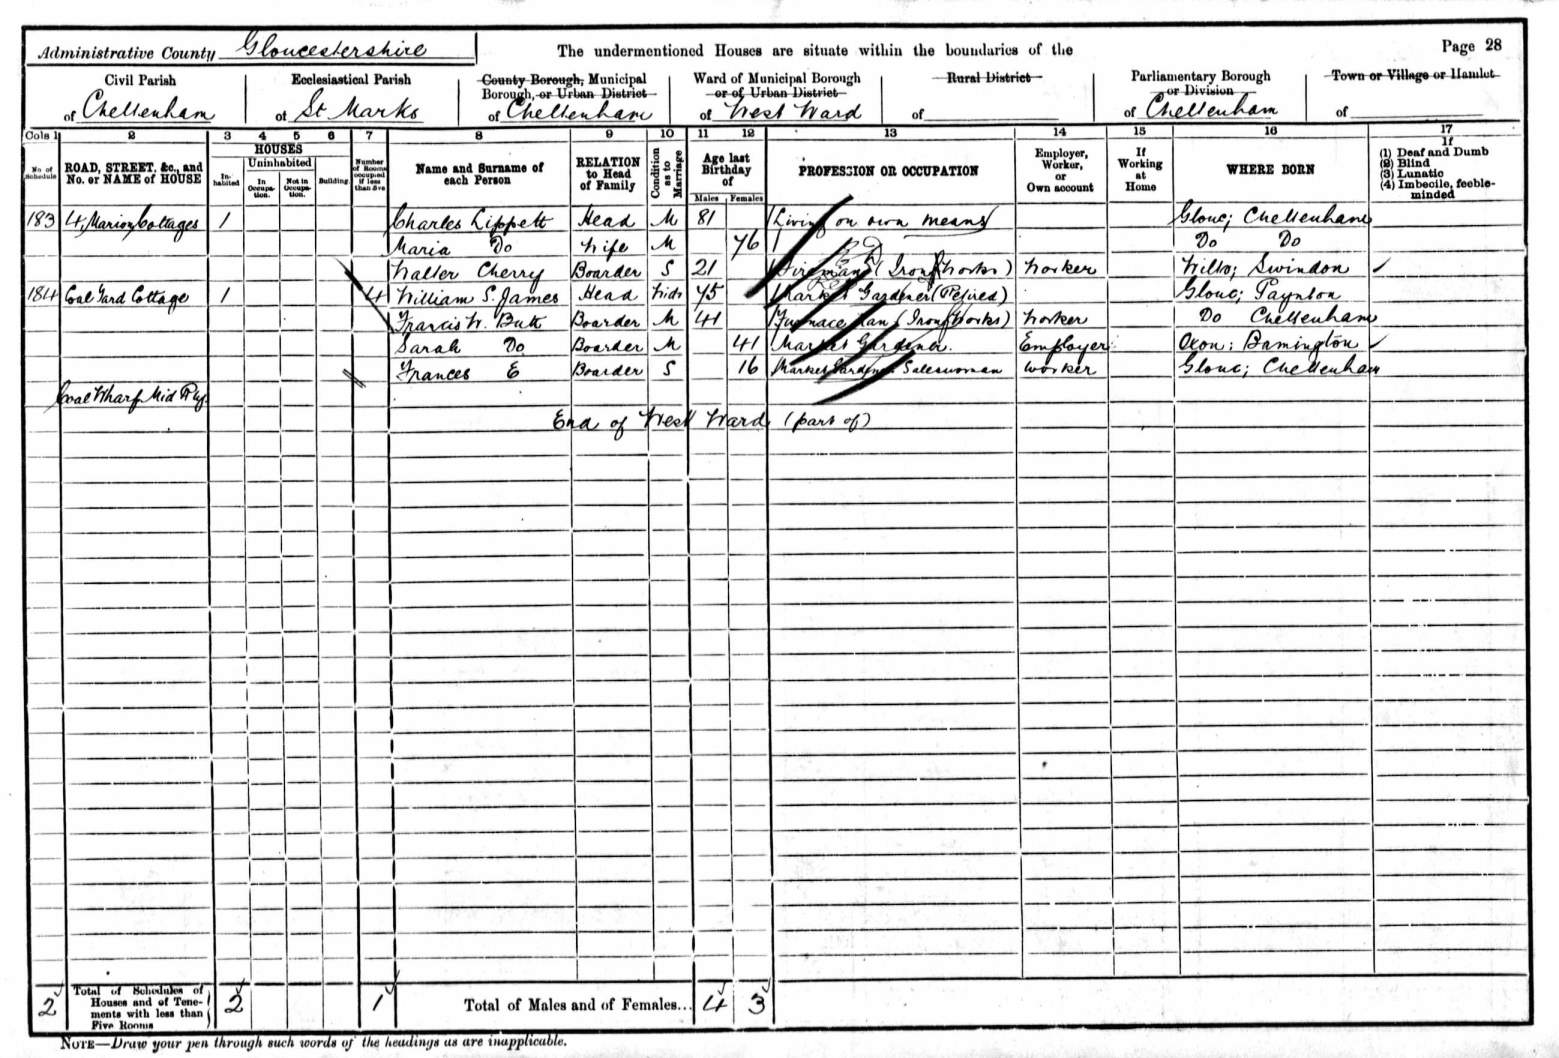 Administrative County Gloucestershire The undermentioned Houses are situate within the boundaries of the Page 28
Civil Parish Ecclesiastical Parish County Borough, Municipal Borough, or Urban District Ward of Municipal Borough or of Urban District Rural District Parliamentary Borough or Division Town or Village or Hamlet
of Cheltenham of St Marks of Cheltenham of West Ward of of Cheltenham of
Cols 1 2 3 4 5 6 7 8 9 10 11 12 13 14 15 16 17
No. of Schedule ROAD, STREET, &c., and No. or NAME of HOUSE HOUSES Inhabited Uninhabited In Occupation. Not in Occupation. Building Number of Rooms occupied if less than five Name and Surname of each Person RELATION to Head of Family Condition as to Marriage Age last Birthday of Males Females PROFESSION OR OCCUPATION Employer, Worker, or Own account If Working at Home WHERE BORN If (1) Deaf and Dumb (2) Blind (3) Lunatic (4) Imbecile, feeble-minded
183 4, Marion Cottages 1 Charles Lippett Head M 81 Living on own means Glouc; Cheltenham
Maria Do Wife M 76 Do Do
Walter Cherry Boarder S 21 Fireman (Iron Works) Worker Wilts; Swindon
184 Coal Yard Cottage 1 4 William S. James Head Wid 75 Market Gardener (Retired) Glouc; Paynton
Francis W. Butt Boarder M 41 Furnace Man (Iron Works) Worker Do Cheltenham
Sarah Do Boarder M 41 Market Gardener. Employer Oxon: Bamington
Frances E Boarder S 16 Market Gardener Saleswoman Worker Glouc; Cheltenham
Coal Wharf Mid Rly.
End of West Ward (part of)
2 Total of Schedules of Houses and of Tenements with less than Five Rooms 2 1 Total of Males and of Females... 4 3
NOTE—Draw your pen through such words of the headings as are inapplicable.